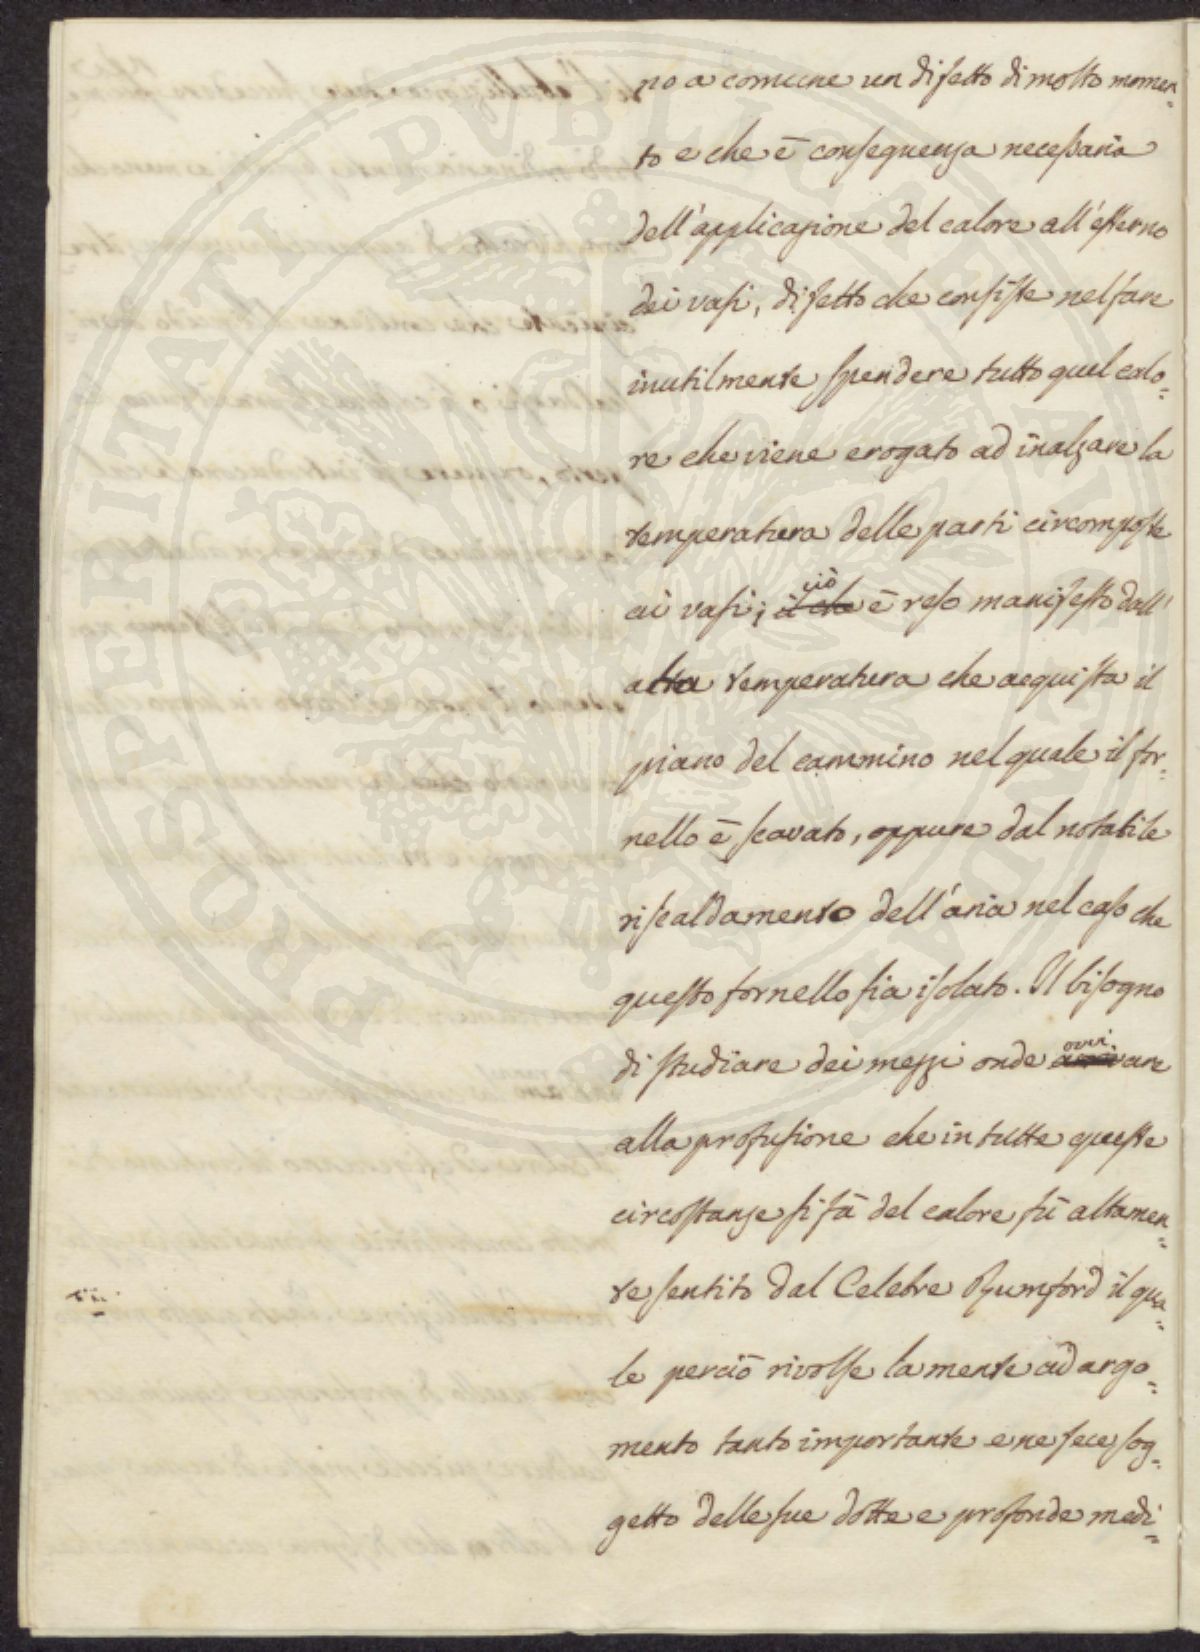 no a comune un difetto di molto momen=
to e che è conseguenza necessaria
dell'applicazione del calore all'esterno
dei vasi, difetto che consiste nel fare
inutilmente spendere tutto quel calo=
re che viene erogato ad inalzare la
temperatura delle parti circomposte
ai vasi; ciò
il che è reso manifesto dall'
alta temperatura che acquista il
piano del cammino nel quale il for=
nello è scavato, oppure dal notabile
riscaldamento dell'aria nel caso che
questo fornello sia isolato. Il bisogno
di studiare dei mezzi onde ovviare
alla profusione che in tutte queste
circostanze si fà del calore fù altamen=
te sentito dal Celebre Rumford il qua=
le perciò rivolse la mente ad argo=
mento tanto importante e ne fece sog=
getto delle sue dotte e profonde medi=
PROSPERITATI PVBLICAE AVGENDAE